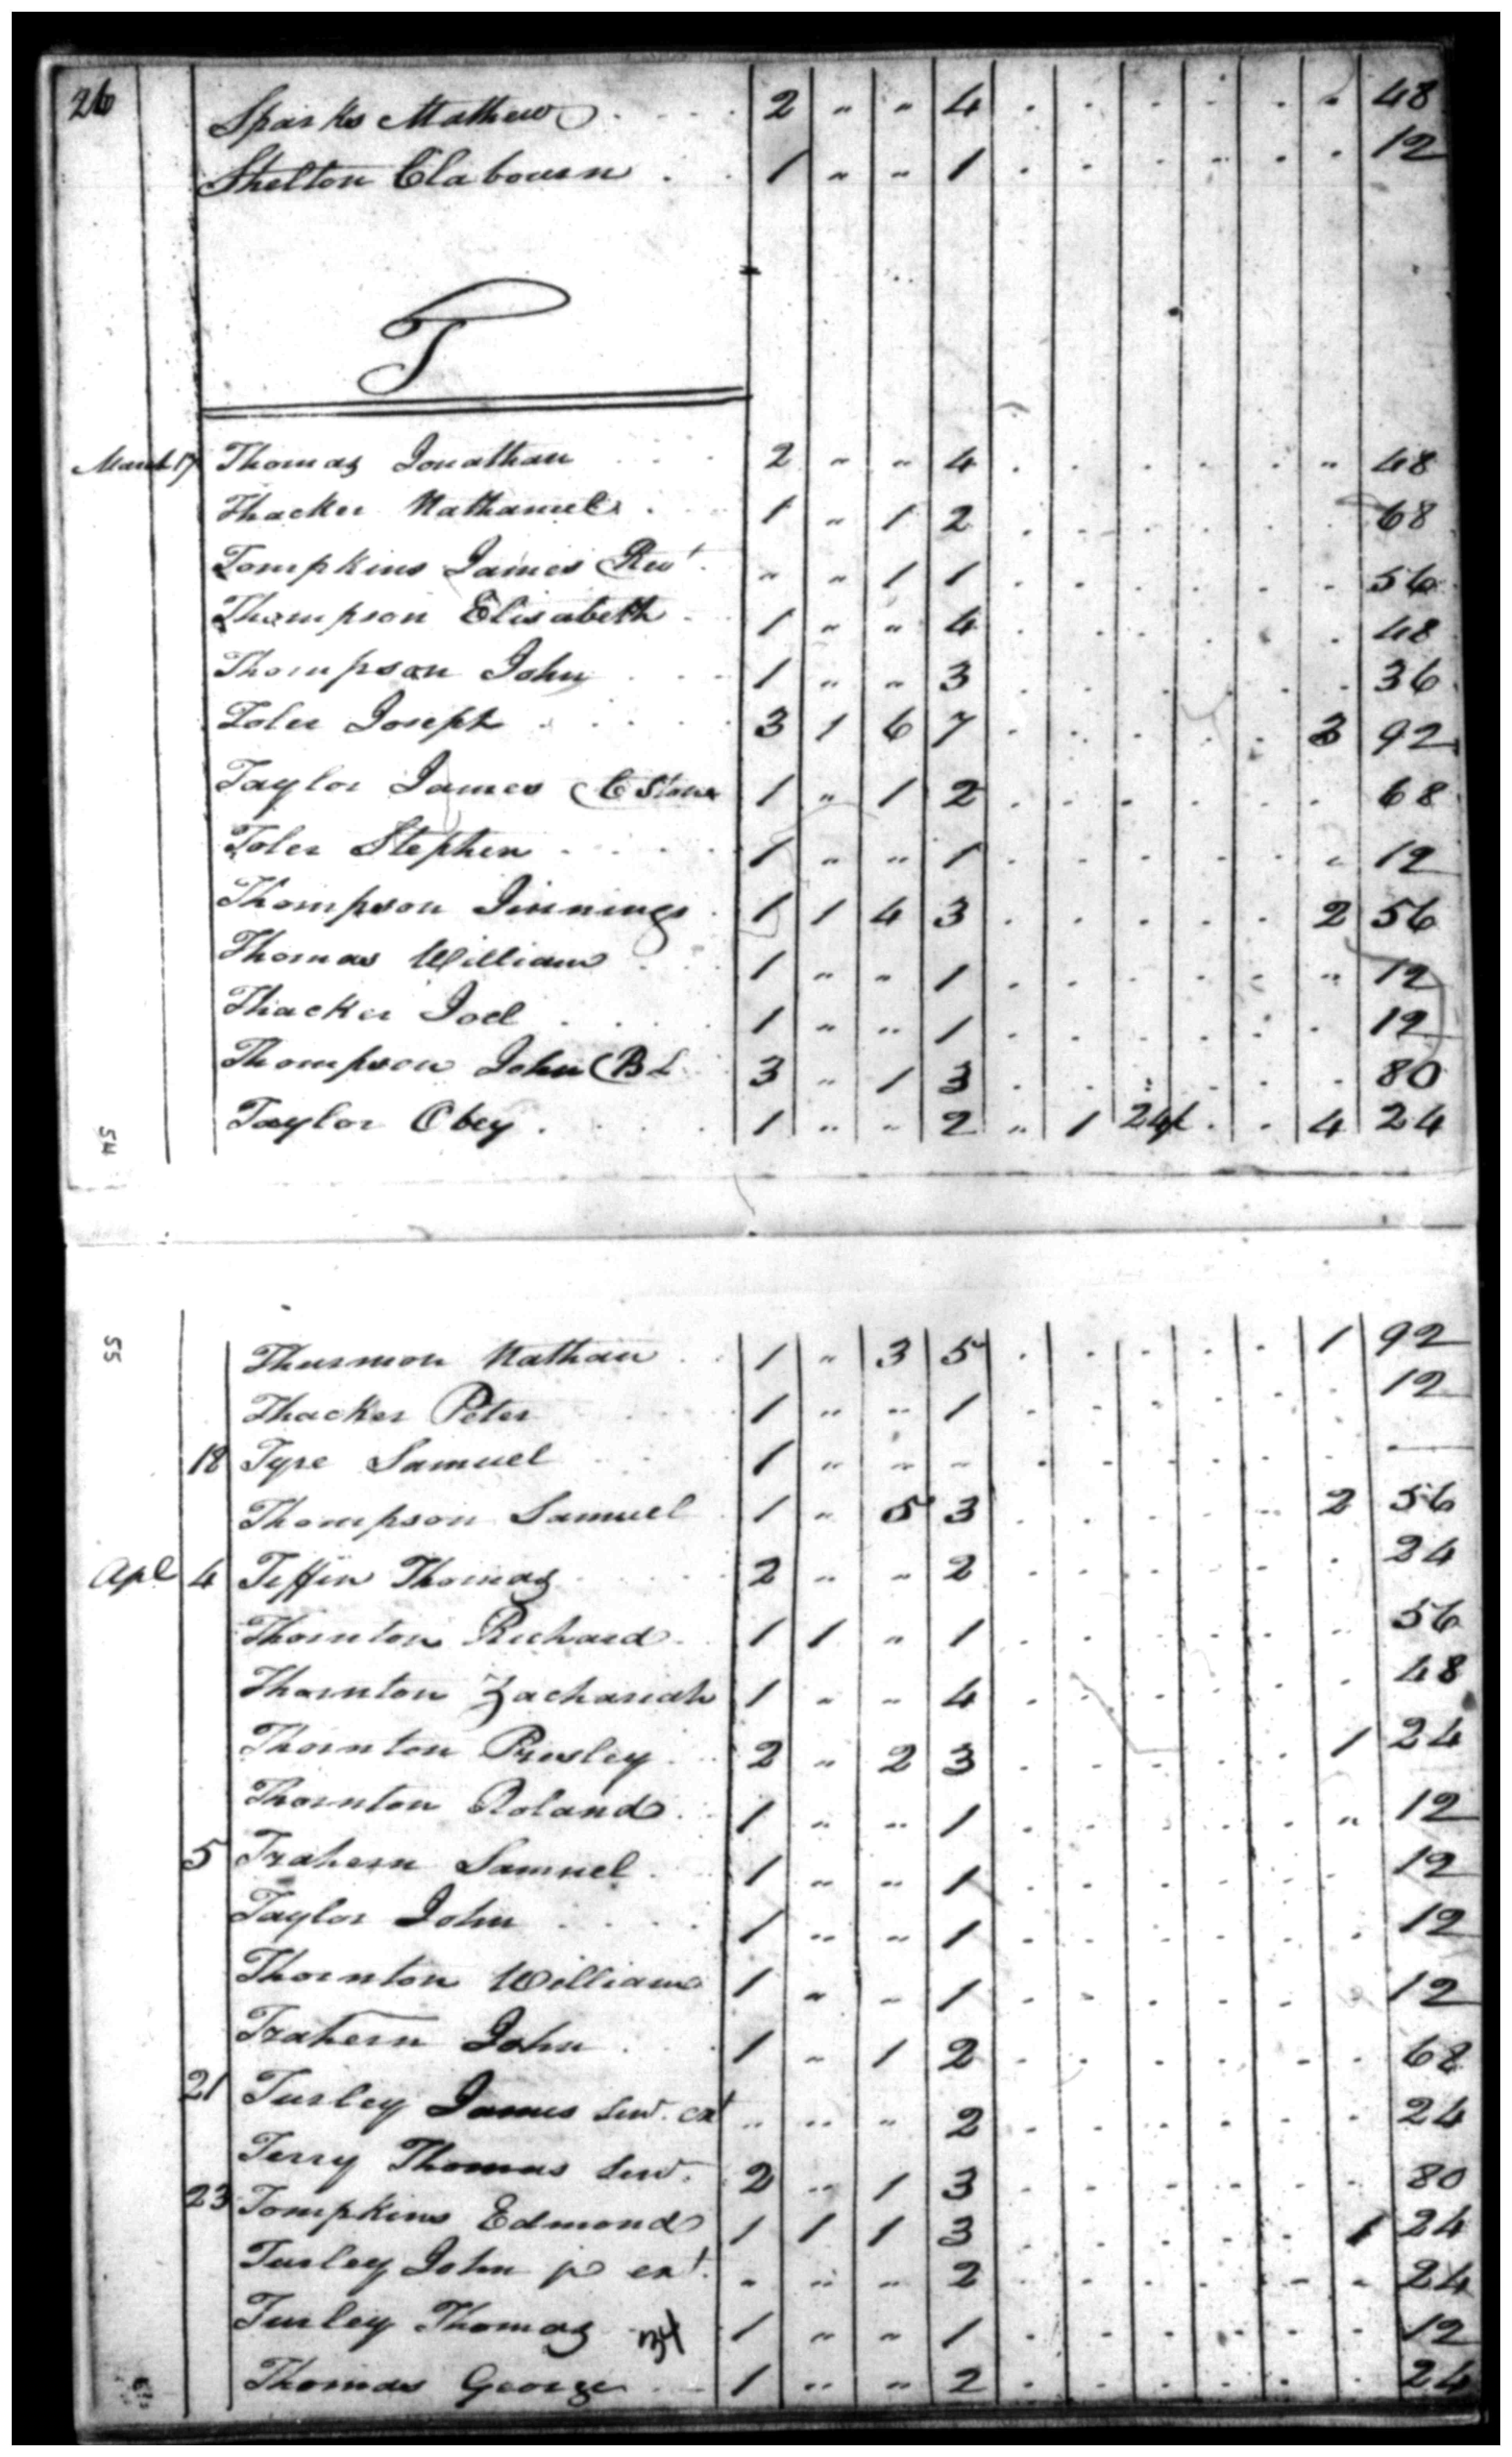 26 Sparks Mathew 2 " " 4 . . . . . . 48
Shelton Clabourn 1 " " 1 . . . . . . 12
T
March 17 Thomas Jonathan 2 " " 4 . . . . . " 48
Thacker Nathaniel 1 " 1 2 . . . . . . 68
Tompkins James Revd. " " 1 1 . . . . . . 56
Thompson Elisabeth 1 " " 4 . . . . . . 48
Thompson John 1 " " 3 . . . . . . 36
Toler Joseph 3 1 6 7 . . . . . 3 92
Taylor James C Stone 1 " 1 2 . . . . . . 68
Toler Stephen 1 " " 1 . . . . . . 12
Thompson Jinnings 1 1 4 3 . . . . . 2 56
Thomas William 1 " " 1 . . . . . " 12
Thacker Joel 1 " " 1 . . . . . . 12
Thompson John (B L 3 " 1 3 . . . . . . 80
Taylor Obey 1 " " 2 " 1 24 . . 4 24
54
55
Thurmon Nathan 1 " 3 5 . . . . . 1 92
Thacker Peter 1 " " 1 . . . . . . 12
18 Tyre Samuel 1 " " " . . . . . . —
Thompson Samuel 1 " 5 3 . . . . . 2 56
Apl 4 Tiffin Thomas 2 " " 2 . . . . . . 24
Thornton Richard 1 1 " 1 . . . . . . 56
Thornton Zachariah 1 " " 4 . . . . . . 48
Thornton Presley 2 " 2 3 . . . . . 1 24
Thornton Roland 1 " " 1 . . . . . " 12
5 Trahern Samuel 1 " " 1 . . . . . . 12
Taylor John 1 " " 1 . . . . . . 12
Thornton William 1 " " 1 . . . . . . 12
Trahern John 1 " 1 2 . . . . . . 68
21 Turley James Senr. ext " " " 2 . . . . . . 24
Terry Thomas Senr. 2 " 1 3 . . . . . . 80
23 Tompkins Edmond 1 1 1 3 . . . . . 1 24
Turley John jr ext. " " " 2 . . . . . . 24
Turley Thomas 1 " " 1 . . . . . . 12
34
Thomas George 1 " " 2 . . . . . . 24